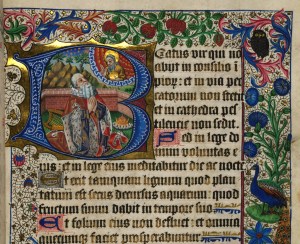 Beatus vir qui no
abiit in consilio i
pior: et in via pec
catorum non stetit
et in cathedra pes
non sedit
Sed in lege do
mini voluntas e
ius et in lege eius meditabitur die ac nocte
Et erit tamquam lignum quod plan
tatum est secus decursus aquarum quod
fructum suum dabit in tempore suo
Et folium eius non defluet: et omnia
quecumque faciet prosperabuntur